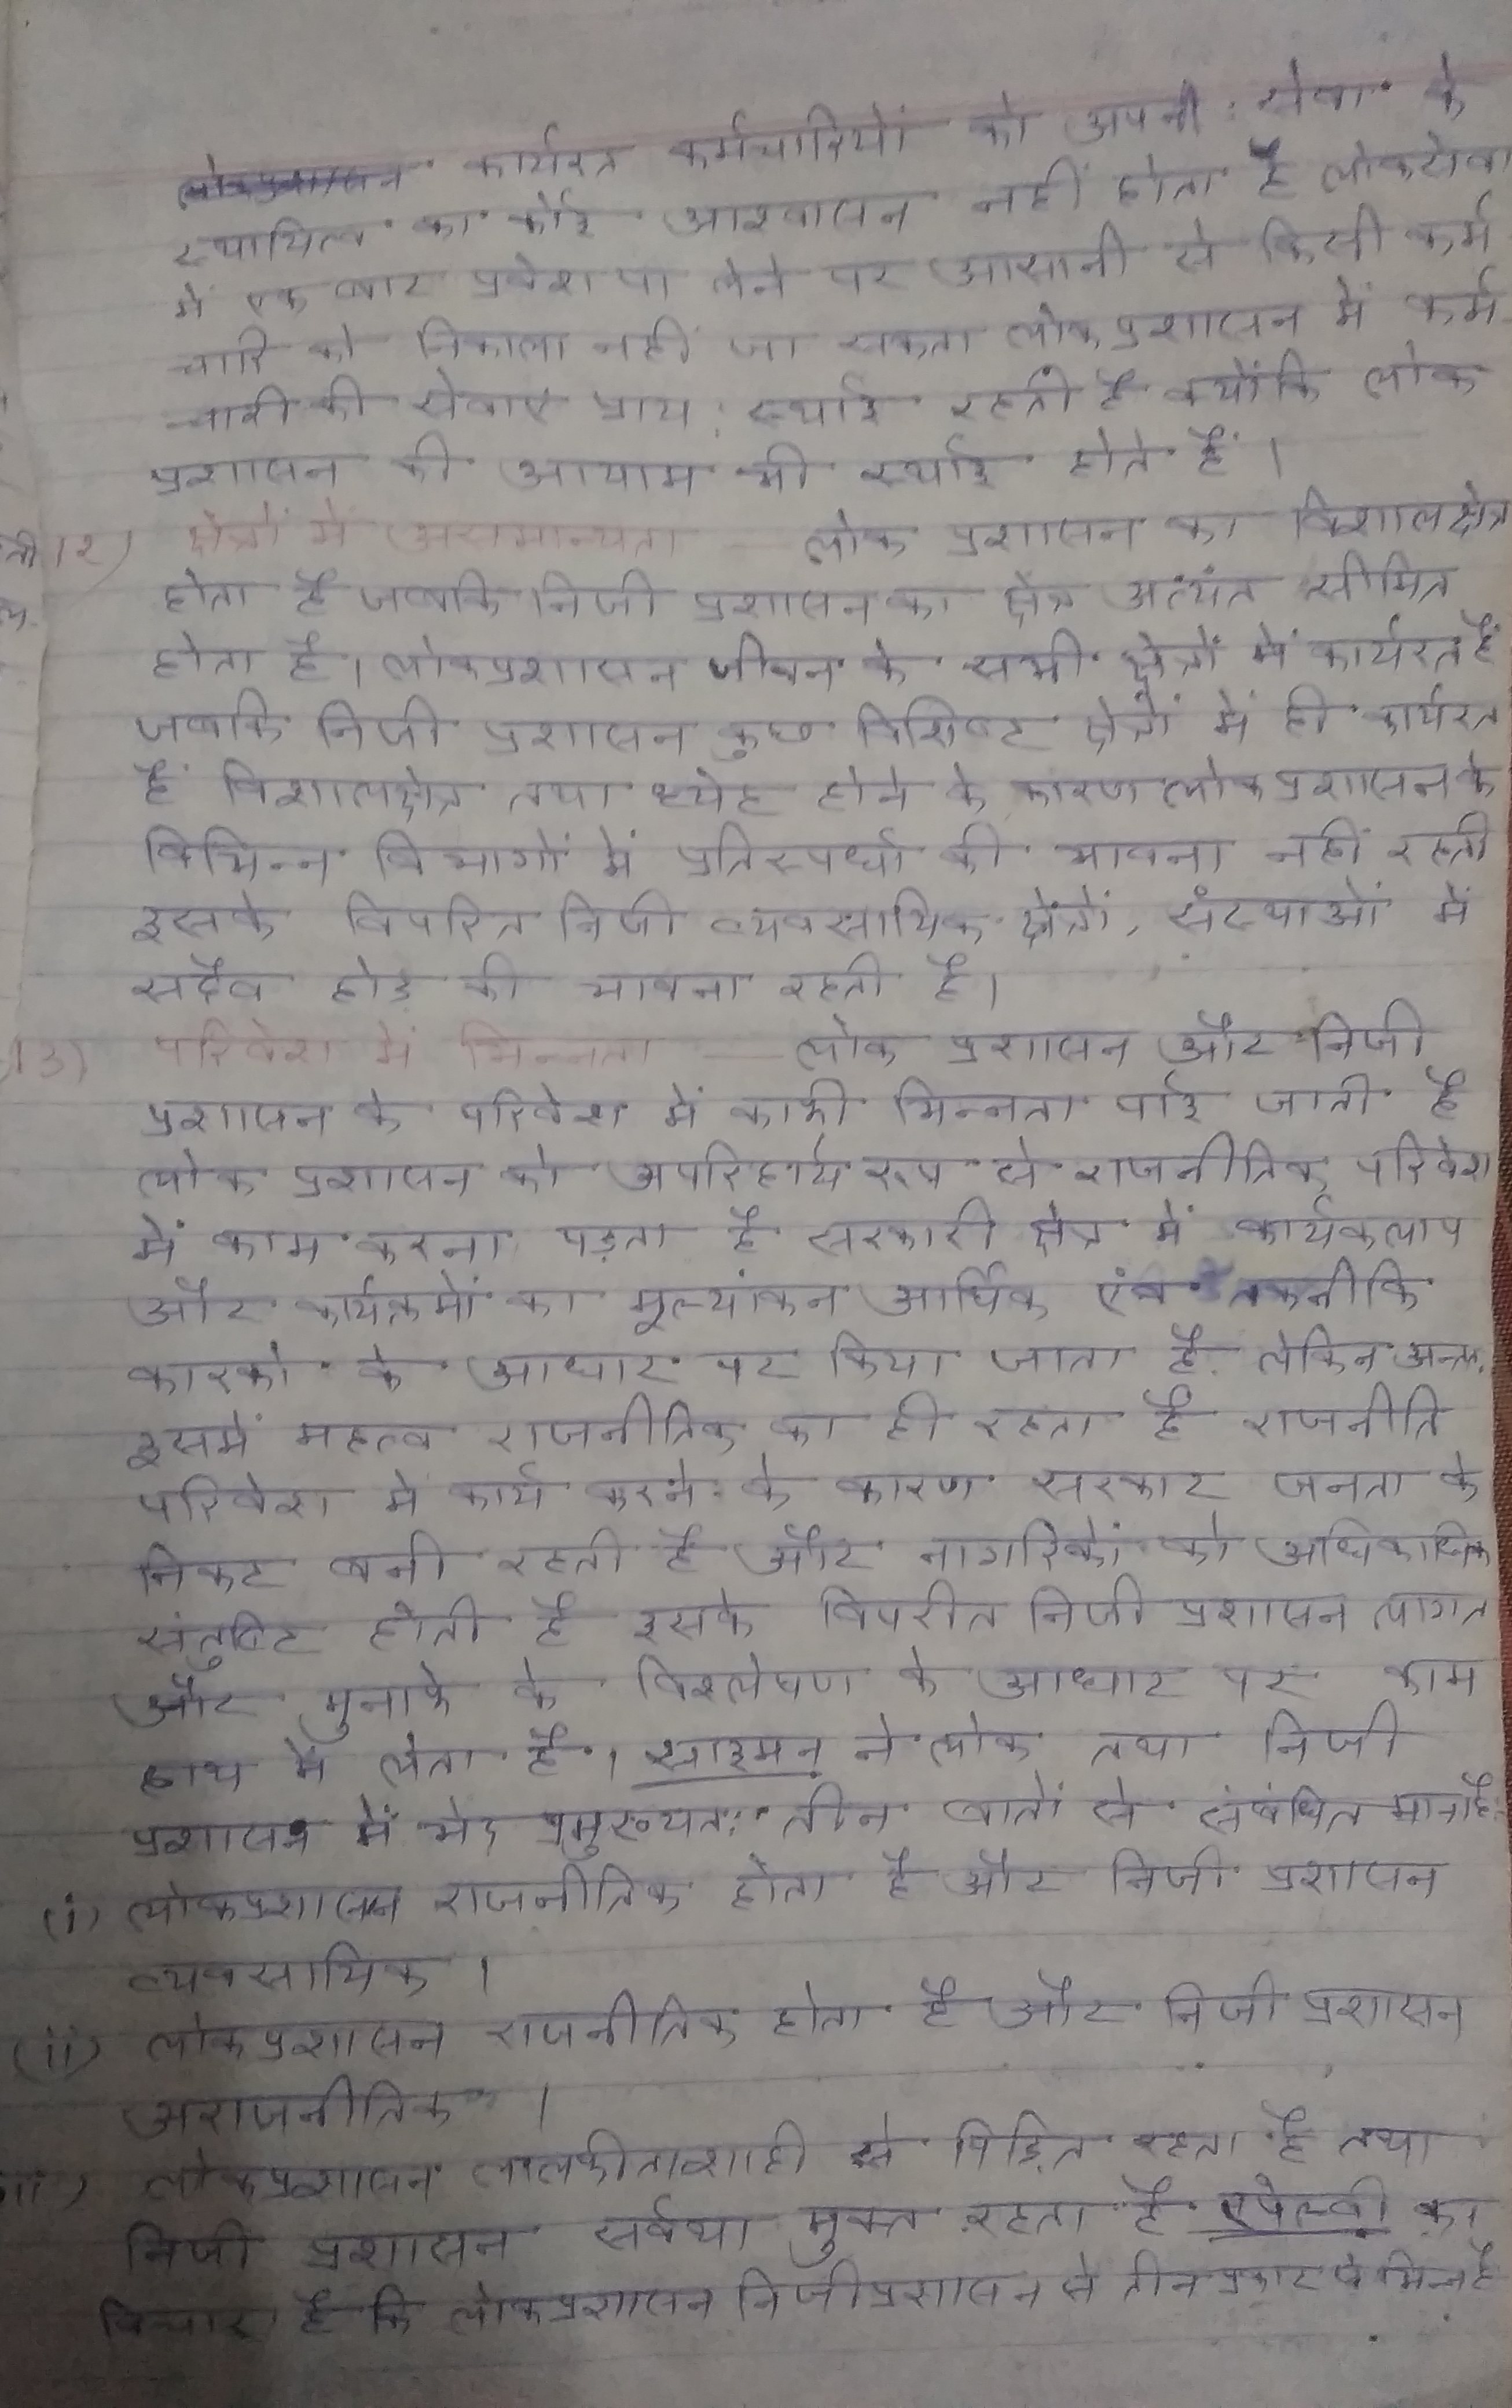 कार्यरत कर्मचारियों को अपनी सेवा के
स्थायित्व का कोई आश्वासन नहीं होता है लोकसेवा
में एक बार प्रवेश पा लेने पर आसानी से किसी कर्म
चारि को निकाला नहीं जा सकता लोकप्रशासन में कर्म
चारी की सेवाएं प्राय: स्थाई रहती है क्योंकि लोक
प्रशासन की आयाम भी स्थाई होते हैं ।
12) क्षेत्रों में असमान्यता — लोक प्रशासन का विशालक्षेत्र
होता है जबकि निजी प्रशासन का क्षेत्र अत्यंत सीमित
होता है। लोकप्रशासन जीवन के सभी क्षेत्रों में कार्यरत हैं
जबकि निजी प्रशासन कुछ विशिष्ट क्षेत्रों में ही कार्यरत
हैं विशालक्षेत्र तथा ध्येह होने के कारण लोकप्रशासन के
विभिन्न विभागों में प्रतिस्पर्धा की भावना नहीं रहती
इसके विपरित निजी व्यवसायिक क्षेत्रों, संस्थाओं में
सदैव होड़ की भावना रहती है।
13) परिवेश में भिन्नता — लोक प्रशासन और निजी
प्रशासन के परिवेश में काफी भिन्नता पाई जाती है
लोक प्रशासन को अपरिहार्य रूप से राजनीतिक परिवेश
में काम करना पड़ता है सरकारी क्षेत्र में कार्यकलाप
और कार्यक्रमों का मूल्यांकन आर्थिक एंव तकनीकि
कारको के आधार पर किया जाता है. लेकिन अन्तत:
इसमें महत्व राजनीतिक का ही रहता है राजनीति
परिवेश मे कार्य करने के कारण सरकार जनता के
निकट बनी रहती है और नागरिकों को अधिकाधिक
संतुष्टि होती है इसके विपरीत निजी प्रशासन लागत
और मुनाफे के विश्लेषण के आधार पर काम
हाथ में लेता है। साइमन ने लोक तथा निजी
प्रशासन में भेद प्रमुख्यत: तीन बातों से संबंधित माना है:
(i) लोकप्रशासन राजनीतिक होता है और निजी प्रशासन
व्यवसायिक ।
(ii) लोकप्रशासन राजनीतिक होता है और निजी प्रशासन
अराजनीतिक ।
iii) लोकप्रशासन लालफीताशाही से पिड़ित रहता है तथा
निजी प्रशासन सर्वथा मुक्त रहता है एपेल्बी का
विचार है कि लोकप्रशासन निजीप्रशासन से तीन प्रकार से भिन्न है